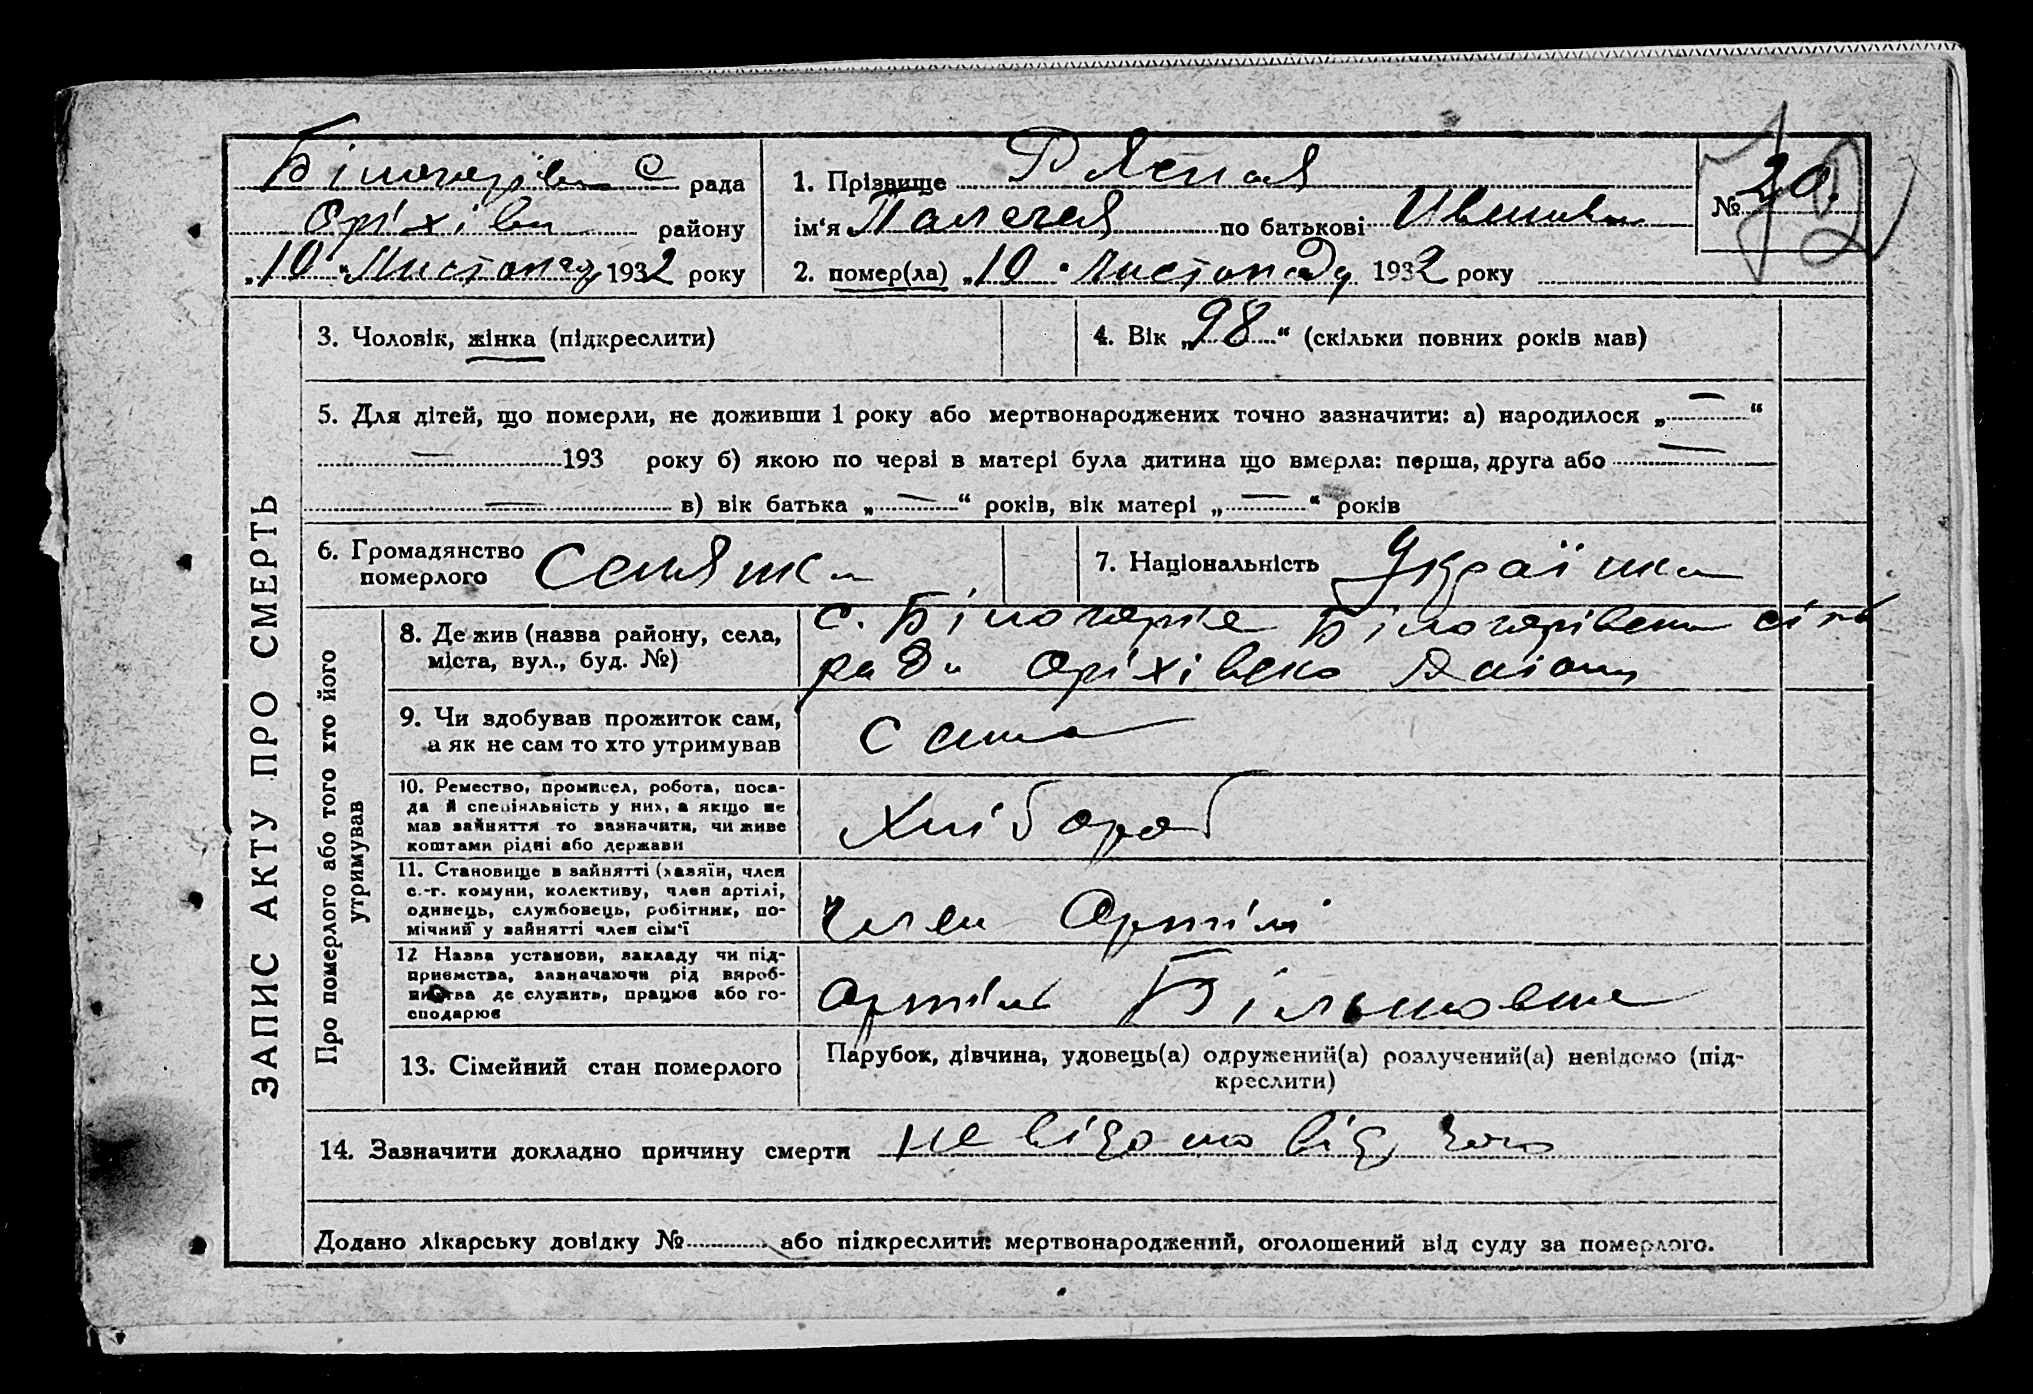 Білогорівська С рада
Оріхівськ району
„10“ Листопаду 1932 року
1. Прізвище Рясная
ім‘я Палагея по батькові Ивановна
2. помер(ла) „10“ Листопаду 1932 року
№ 20.
ЗАПИС АКТУ ПРО СМЕРТЬ
3. Чоловік, жінка (підкреслити)
4. Вік „98“ (скільки повних років мав)
5. Для дітей, що померли, не доживши 1 року або мертвонароджених точно зазначити: а) народилося „—“
— 193 року б) якою по черзі в матері була дитина що вмерла: перша, друга або —
— в) вік батька „—“ років, вік матері „—“ років
6. Громадянство
померлого Селянка
7. Національність Українка
Про померлого або того хто його
утримував
8. Де жив (назва району, села,
міста, вул., буд. №)
с. Білогоріє Білогорівська сіль
ради Оріхівсько Району
9. Чи здобував прожиток сам,
а як не сам то хто утримував
Сама
10. Ремество, промисел, робота, поса-
да й спеціяльність у них, а якщо не
мав зайняття то зазначити, чи живе
коштами рідні або держави
Хлібороб
11. Становище в зайнятті (хазяїн, член
с.-г. комуни, колективу, член артілі,
одинець, службовець, робітник, по-
мічний у зайнятті член сім‘ї
Член Артілі
12 Назва установи, закладу чи під-
приємства, зазначаючи рід вироб-
ництва де служить, працює або го-
сподарює
Артіль
13. Сімейний стан померлого
Парубок, дівчина, удовець(а) одружений(а) розлучений(а) невідомо (під-
креслити)
14. Зазначити докладно причину смерти невідомо від чого
Додано лікарську довідку № або підкреслити: мертвонароджений, оголошений від суду за померлого.